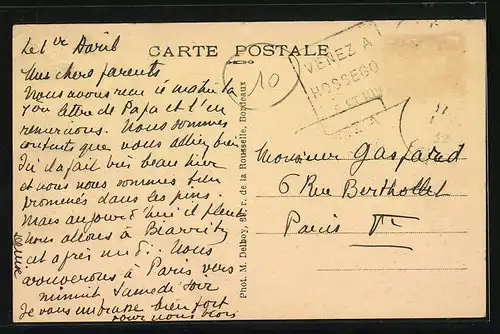 Le 1er Avril
CARTE POSTALE
Mes chers parents
Nous avons reçu ce matin la
lettre de Papa et l'en
remercions. Nous sommes
contents que vous alliez bien
Ici il a fait très beau hier
et nous nous sommes bien
promenés dans les pins.
Mais aujourd'hui il pleut
nous allons à Biarritz
cet après midi. Nous
arriverons à Paris vers
minuit Samedi soir
Je vous embrasse bien fort
pour nous trois
10
VENEZ A
HOSSEGO
Monsieur Gaspard
6 Rue Berthollet
Paris Ve
Phot. M. Delboy, r. de la Rousselle, Bordeaux